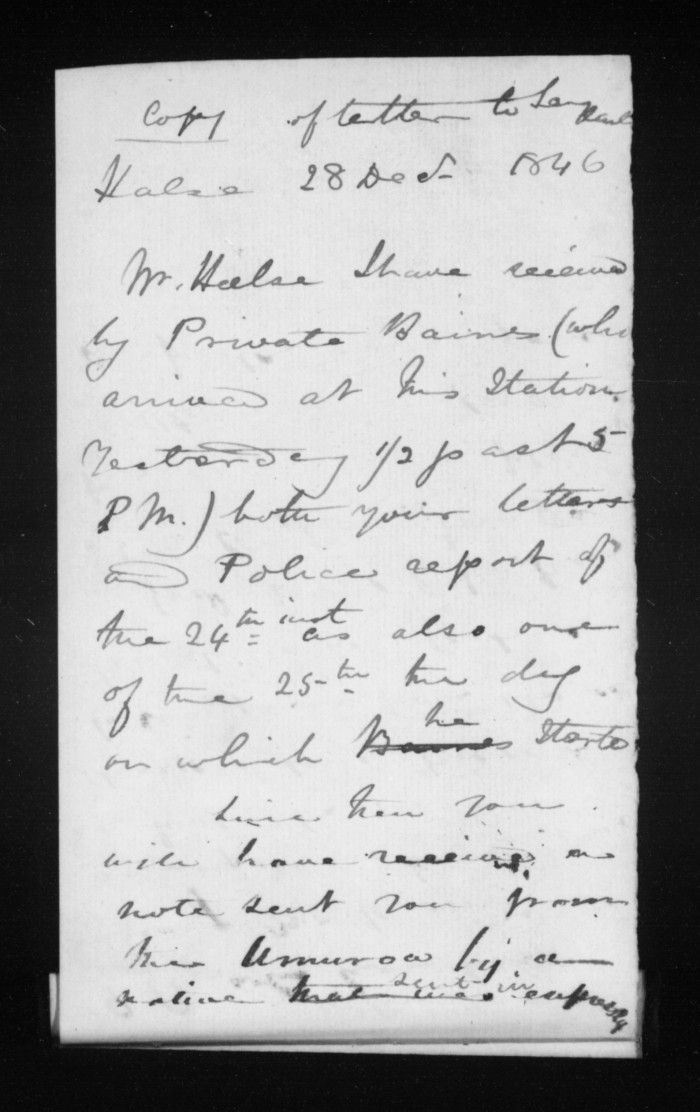 Copy of letter to Serg
Halse 28 Decr 1846
Mr. Halse I have received
by Private Baines (who
arrived at this Station
Yesterday 1/2 past 5
P M.) both your letters
and Police report of
the 24th inst as also one
of the 25th the day
on which Baines he Started
Since then you
will have received a
note sent you from
the Umuroa by a
native that was sent in expressly